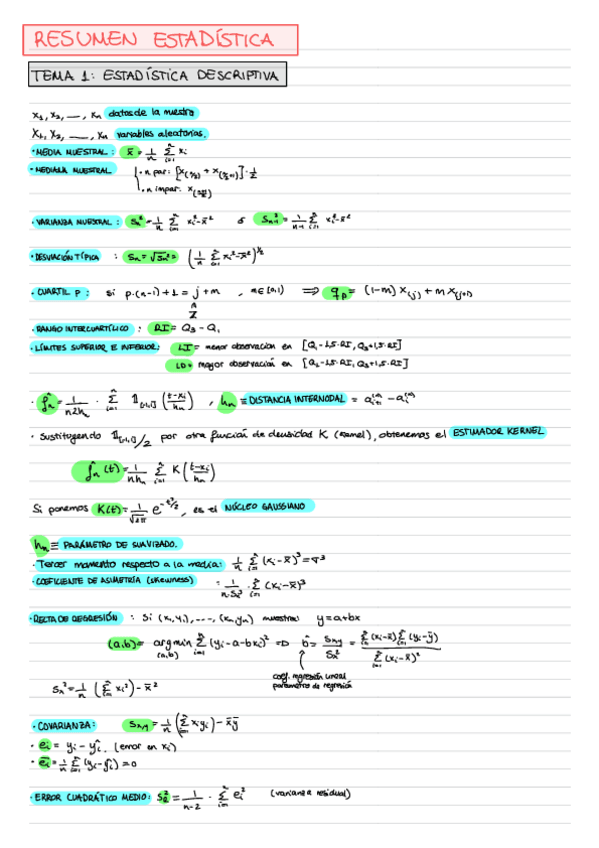 RESUMEN ESTADÍSTICA
TEMA 1: ESTADÍSTICA DESCRIPTIVA
x₁, x₂, __, xₙ datos de la muestra
X₁, X₂, __, Xₙ variables aleatorias.
· MEDIA MUESTRAL: x̄ = 1/n Σᵢ₌₁ⁿ xᵢ
· MEDIANA MUESTRAL · n par: [x(n/2) + x(n/2+1)] · 1/2
· n impar: x((n+1)/2)
· VARIANZA MUESTRAL: Sₙ² = 1/n Σᵢ₌₁ⁿ xᵢ² - x̄² ó Sₙ₋₁² = 1/(n-1) Σᵢ₌₁ⁿ xᵢ² - x̄²
· DESVIACIÓN TÍPICA : Sₙ = √Sₙ² = (1/n Σᵢ₌₁ⁿ xᵢ² - x̄²)^1/2
· CUARTIL P : Si p·(n-1)+1 = j+m , m∈[0,1) ⇒ q_p = (1-m) x(j) + m x(j+1)
· RANGO INTERCUARTÍLICO : RI = Q₃ - Q₁
· LÍMITES SUPERIOR E INFERIOR: LI = menor observación en [Q₁-1,5·RI, Q₃+1,5·RI]
LD = mayor observación en [Q₁-1,5·RI, Q₃+1,5·RI]
· f̂ₙ = 1/(n2hₙ) · Σᵢ₌₁ⁿ 𝟙[-1,1] ((t-xᵢ)/hₙ) , hₙ ≡ DISTANCIA INTERNODAL
· Sustituyendo 𝟙[-1,1]/2 por otra función de densidad K (kernel), obtenemos el ESTIMADOR KERNEL
f̂ₙ(t) = 1/(nhₙ) Σᵢ₌₁ⁿ K((t-xᵢ)/hₙ)
Si ponemos K(t) = 1/√2π e^(-t²/2), es el NÚCLEO GAUSSIANO
hₙ ≡ PARÁMETRO DE SUAVIZADO.
· Tercer momento respecto a la media: 1/n Σᵢ₌₁ⁿ (xᵢ-x̄)³ = σ³
· COEFICIENTE DE ASIMETRÍA (skewness) : 1/(n·Sₓ³) · Σᵢ₌₁ⁿ (xᵢ-x̄)³
· RECTA DE REGRESIÓN : Si (x₁,y₁), ..., (xₙ,yₙ) muestra: y = a+bx
(a,b) = argmin (a,b) Σᵢ₌₁ⁿ (yᵢ-a-bxᵢ)² ⇒ b̂ = Sxy/Sx² = Σ(xᵢ-x̄)Σ(yᵢ-ȳ) / Σᵢ₌₁ⁿ(xᵢ-x̄)²
coef. regresión lineal
parámetro de regresión
Sₓ² = 1/n (Σᵢ₌₁ⁿ xᵢ²) - x̄²
· COVARIANZA: Sx,y = 1/n (Σᵢ₌₁ⁿ xᵢyᵢ) - x̄ȳ
· eᵢ = yᵢ - ŷᵢ. (error en xᵢ)
· ēᵢ = 1/n Σᵢ₌₁ⁿ (yᵢ-ŷᵢ) = 0
· ERROR CUADRÁTICO MEDIO: S_R² = 1/(n-2) · Σᵢ₌₁ⁿ eᵢ² (varianza residual)